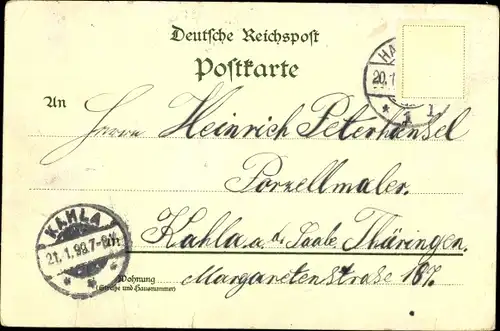 Deutsche Reichspost
Postkarte
HA
20.1
1
An Herrn Heinrich Peterhänsel
Porzellmaler.
Kahla a. d. Saale, Thüringen.
KAHLA
21.1.99.7-8
in
Wohnung
(Straße und Hausnummer)
Margaretenstraße 187.